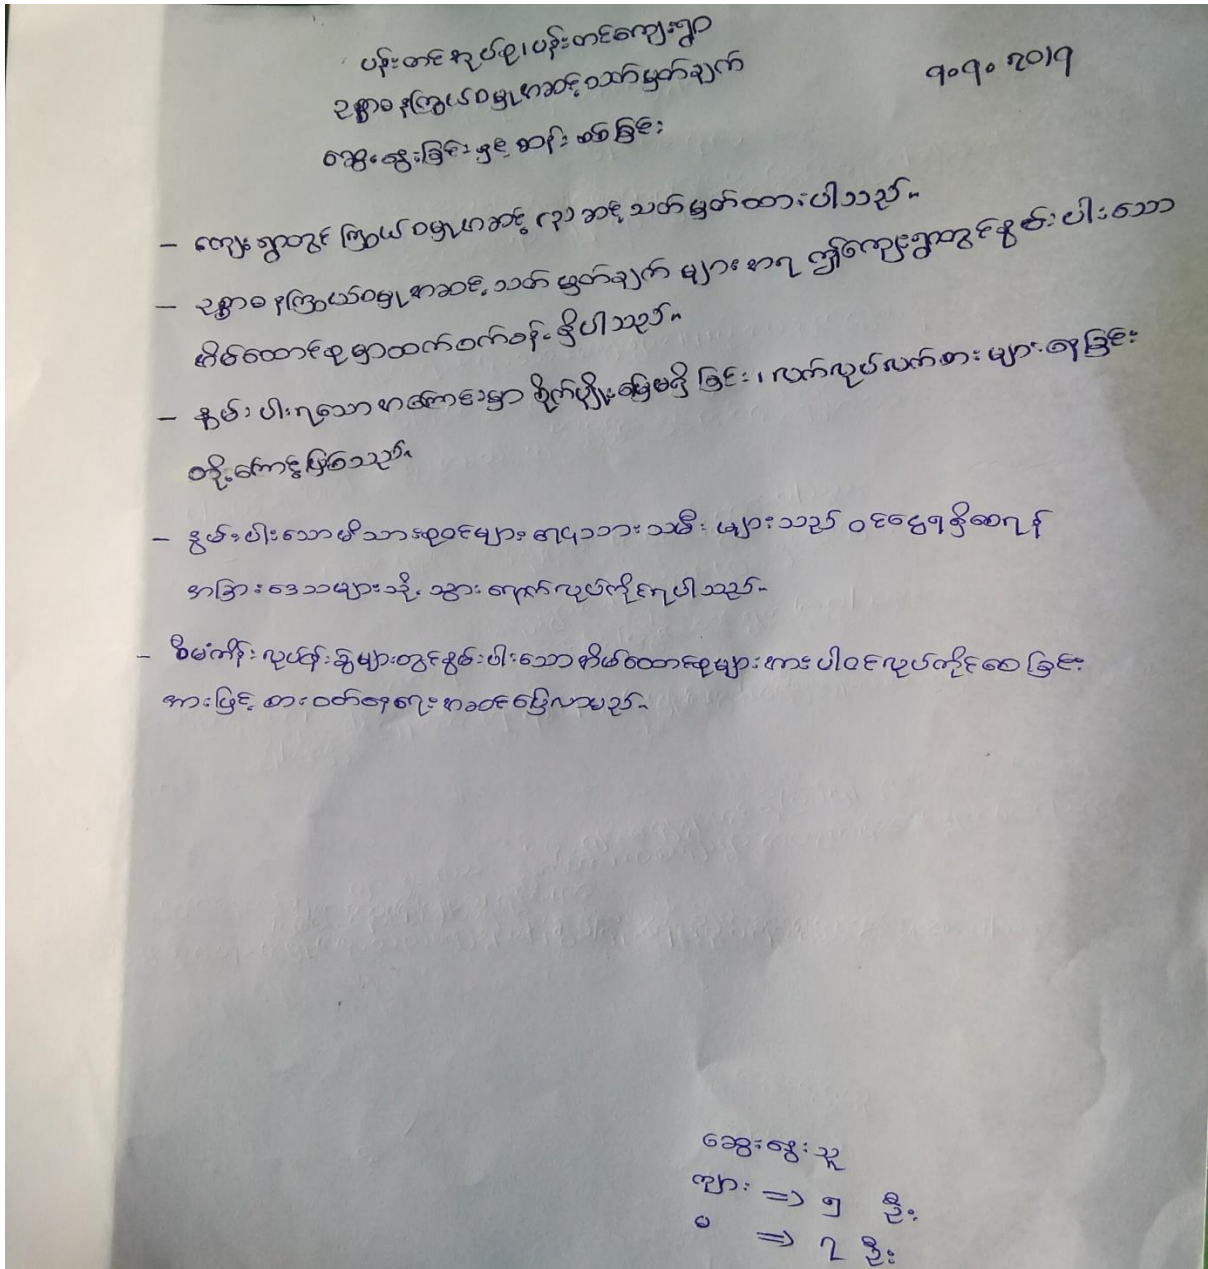 ပန်းတင်အုပ်စု၊ ပန်းတင်ကျေးရွာ
ဥစ္စာဓနကြွယ်ဝမှုအဆင့်သတ်မှတ်ချက်
ဆွေးနွေးခြင်းနှင့် ဆန်းစစ်ခြင်း
၇.၇.၂၀၁၇
- ကျေးရွာတွင် ကြွယ်ဝမှုအဆင့် (၃) ဆင့် သတ်မှတ်ထားပါသည်။
- ဥစ္စာဓနကြွယ်ဝမှုအဆင့် သတ်မှတ်ချက် များအရ ဤကျေးရွာတွင်နွမ်းပါးသော
အိမ်ထောင်စုမှာထက်ဝက်ခန့်ရှိပါသည်။
- နွမ်းပါးရသောအကြောင်းမှာ စိုက်ပျိုးမြေမရှိခြင်း၊ လက်လုပ်လက်စားများနေခြင်း
တို့ကြောင့်ဖြစ်သည်။
- နွမ်းပါးသောမိသားစုဝင်များ သားသမီးများသည် ဝင်ငွေရရှိစေရန်
အခြားဒေသများသို့ သွားရောက်လုပ်ကိုင်ရပါသည်။
- စီမံကိန်းလုပ်ငန်းခွဲများတွင်နွမ်းပါးသောအိမ်ထောင်စုများအားပါဝင်လုပ်ကိုင်စေခြင်း
အားဖြင့် စားဝတ်နေရေးအဆင်ပြေလာမည်။
ဆွေးနွေးသူ
ကျား => ၅ ဦး
မ => ၇ ဦး